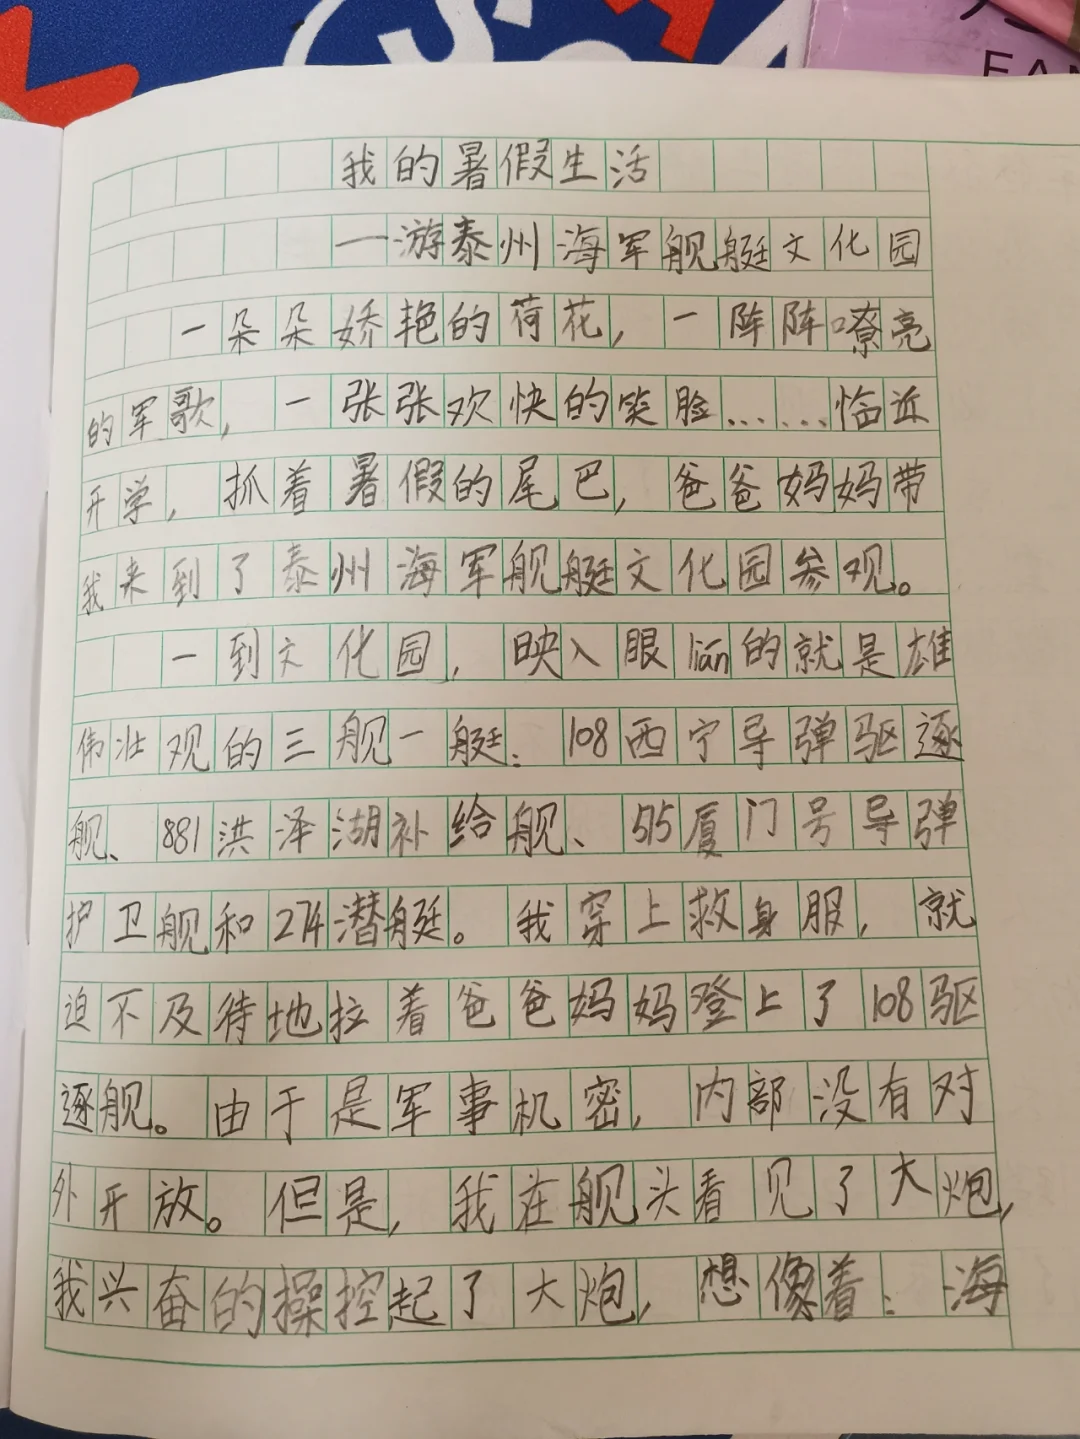 我的暑假生活
——游泰州海军舰艇文化园
一朵朵娇艳的荷花，一阵阵嘹亮
的军歌，一张张欢快的笑脸……临近
开学，抓着暑假的尾巴，爸爸妈妈带
我来到了泰州海军舰艇文化园参观。
一到文化园，映入眼lián的就是雄
伟壮观的三舰一艇：108西宁导弹驱逐
舰、881洪泽湖补给舰、515厦门号导弹
护卫舰和274潜艇。我穿上救身服，就
迫不及待地拉着爸爸妈妈登上了108驱
逐舰。由于是军事机密，内部没有对
外开放。但是，我在舰头看见了大炮，
我兴奋的操控起了大炮，想像着：海